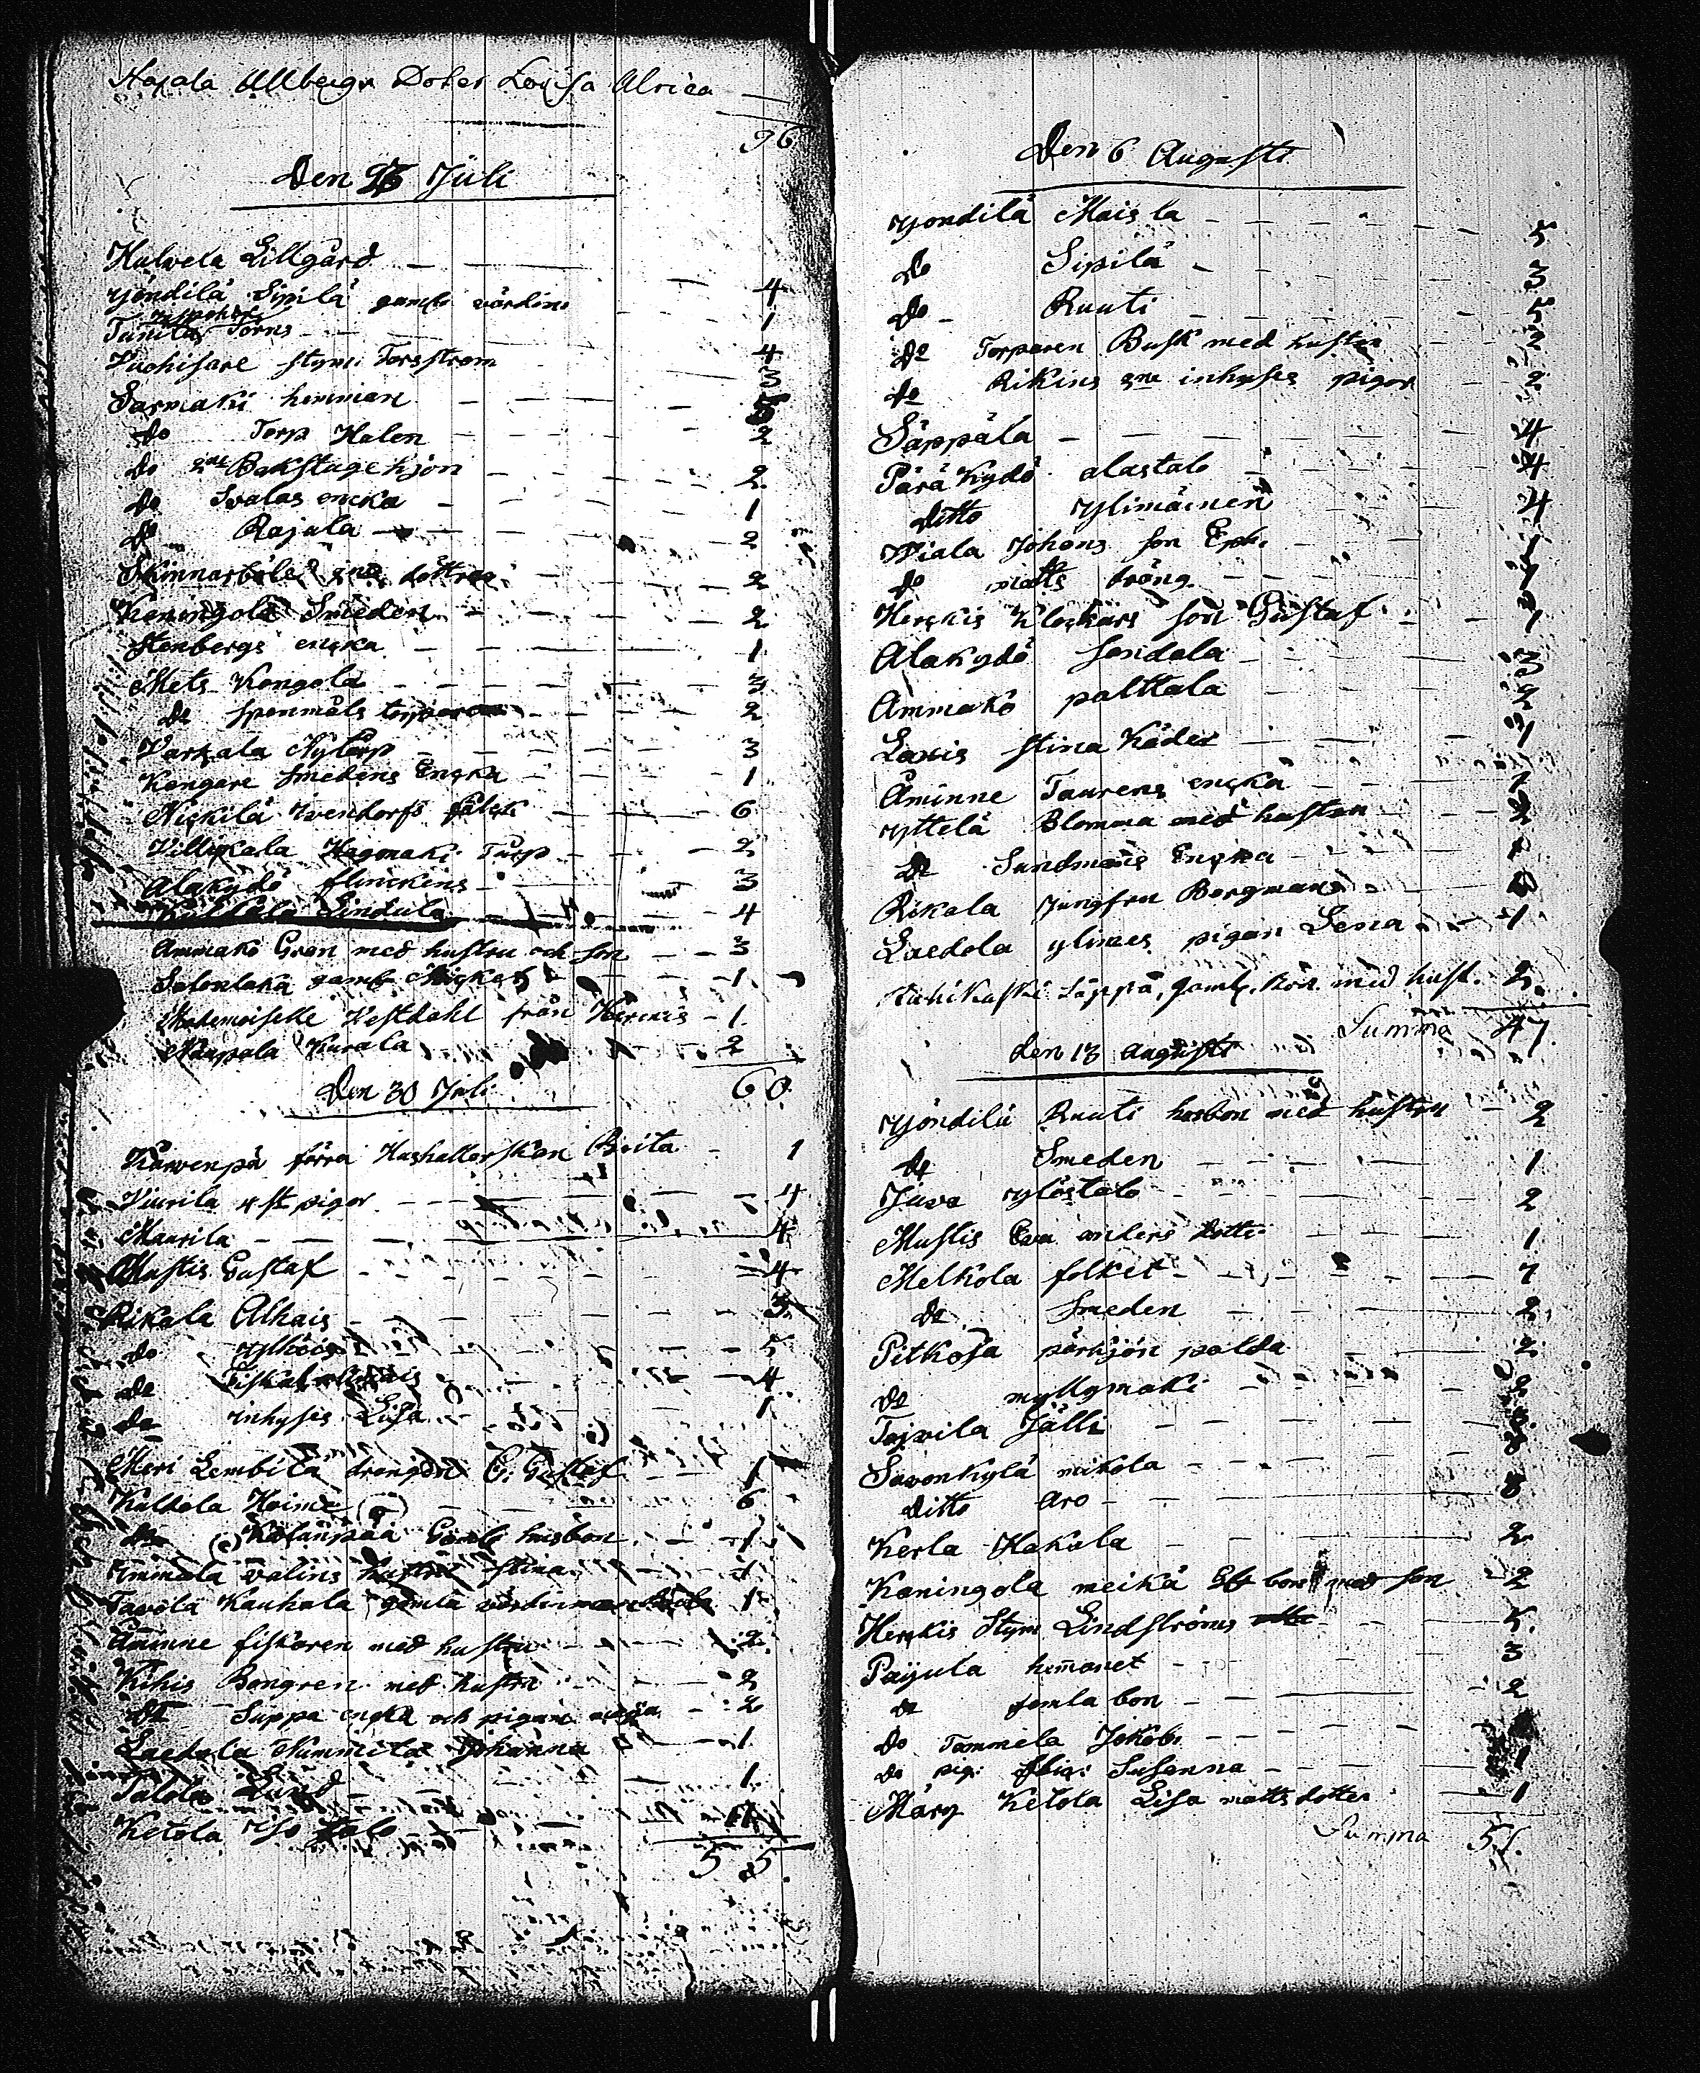 Hajala Ullbergs Doter Lovisa Ulrica
96
Den 23 Juli
Halvela Lillgård 4
Yöndilä Sipilä gamb värdin 1
Tunila Torns 4
Vuohisare stym: Forsström 3
Sarmaki hemman 5
do Torp Halen 2
do 2ne Bakstugehjon 2
do Svalas encka 1
do Rajala 2
Skinnarböle 2ne döttrar 2
Koningola Smeden 2
Stenbergs encka 1
Mets Kongola 3
do spenmåls torparen 2
Varsala Nytorp 3
Kongare smedens Encka 1
Nickilä Ivendorfs fålck 6
Villiskala Hagmaki Torp 2
Alakydö flinckens 3
Lindula 4
Ammakö Gran med hustru och son 3
Salonlaka gamb 1
Mademoiselle Vestdahl från Herckis 1
Naapala Kurala 2
60
Den 30 Juli
Karvenpä förra Hushallerskan Brita 1
Viurila 4 st pigor 4
Maurila 4
Mustis Gustaf 4
Rikala Alhais 3
do 5
do 4
do inhyses Lisa 1
Meri Lembilä drengen G: Gustaf 1
Kaltola Heime 6
do Kolanpää Gamb husbon 1
valins hustru Stina 1
Tavola Kauhala gamla 1
Åminne fiskaren med hustru 2
Kihis Bongren med hustru 2
do Suppa encka och pigan 2
Laedola Nummila Johanna 1
Talola Lund 1
Ketola Iso talo
55
Den 6 Augusti
Yöndilä Maisla 5
do Sipilä 3
do Ruuti 5
do Torparen Busk med hustru 2
do Rikins 2ne inhyses pigor 2
Säppälä 4
Pärä Kydö alastalo 4
ditto Ylimäinen 4
Viala Johans son Eph. 1
do matts dräng 1
Herckis Klockars son Gustaf 1
Alakydö sondola 3
Ammakö palttala 2
Laxis stina Käder 1
Åminne Taurens encka 1
Yttelä Blomma med hustru 2
do Sundmans Encka 1
Rikala Jungfru Bergman
Laedola ylines pigan Lena 1
Täppä, gamb. Bön. med hust. 2
Summa 47
den 13 Augusti
Yöndilä Ruuti husbon med hustru 2
do Smeden 1
Juva Ylöstalo 2
Mustis Eva anders dotter 1
Melkola folket 7
do Smeden 2
Pitkoja pärhjön palda 2
do myllymaki 2
Tojvila Jälli
Savonkylä mikola 8
ditto Aro 8
Kerla Hakala 2
Koningola meikä med son 2
Herckis Stym Lindströms 5
Paijula hemanet 3
do 2
do Tammela Jakob
do pig: Susanna 1
Märy Ketola Lisa matts dotter 1
Summa 51.